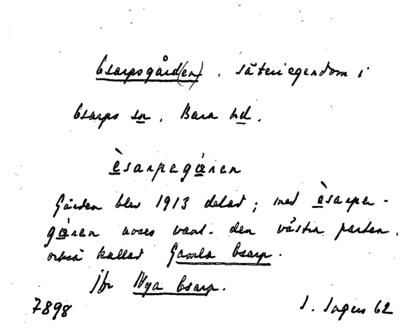 Esarpsgård(en), säteriegendom i
Esarps sn. Bara hd.
èsarpagɑ̀ren
Gården blev 1913 delad; med èsarpa-
gɑ̀ren avses vanl. den västra parten,
också kallad Gamla Esarp.
Jfr Nya Esarp.
7898 I. Ingers 62